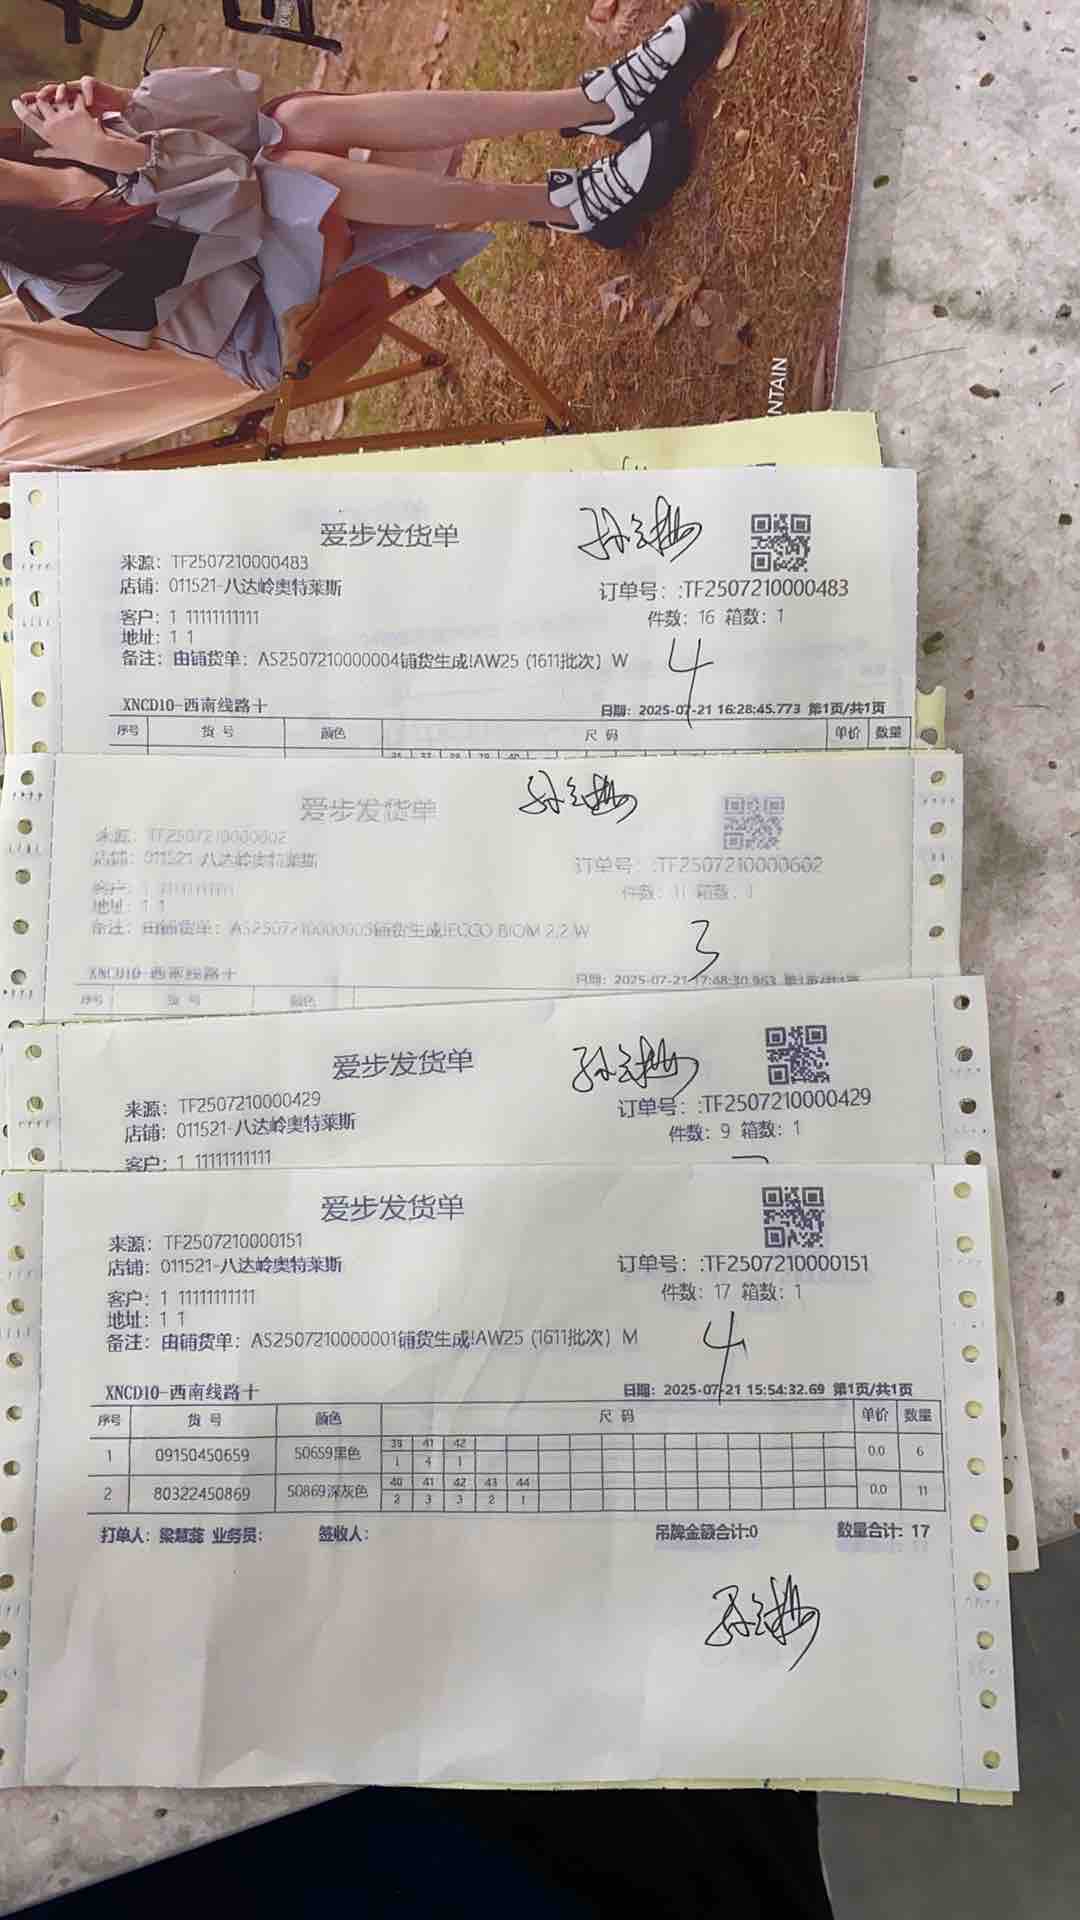 NTAIN
爱步发货单
来源：TF2507210000483
店铺：011521-八达岭奥特莱斯
订单号：:TF2507210000483
客户：1 11111111111
件数：16 箱数：1
地址：1 1
备注：由铺货单：AS2507210000004铺货生成!AW25 (1611批次) W
4
XNCD10-西南线路十
日期：2025-07-21 16:28:45.773 第1页/共1页
序号 货 号 颜色 尺 码 单价 数量
爱步发货单
来源：TF2507210000602
店铺：011521-八达岭奥特莱斯
订单号：:TF2507210000602
客户：1
件数：11 箱数：1
地址：1 1
备注：由铺货单：AS2507210000005铺货生成!ECCO BIOM 2.2 W
3
XNCD10-西南线路十
日期：2025-07-21 17:48:30.963 第1页/共1页
序号 货 号 颜色
爱步发货单
来源：TF2507210000429
订单号：:TF2507210000429
店铺：011521-八达岭奥特莱斯
件数：9 箱数：1
客户：1 11111111111
爱步发货单
来源：TF2507210000151
店铺：011521-八达岭奥特莱斯
订单号：:TF2507210000151
客户：1 11111111111
件数：17 箱数：1
地址：1 1
备注：由铺货单：AS2507210000001铺货生成!AW25 (1611批次) M
4
XNCD10-西南线路十
日期：2025-07-21 15:54:32.69 第1页/共1页
序号 货 号 颜色 尺 码 单价 数量
39 41 42
1 09150450659 50659黑色 0.0 6
1 4 1
40 41 42 43 44
2 80322450869 50869深灰色 0.0 11
2 3 3 2 1
打单人：梁慧蕊 业务员： 签收人： 吊牌金额合计:0 数量合计：17